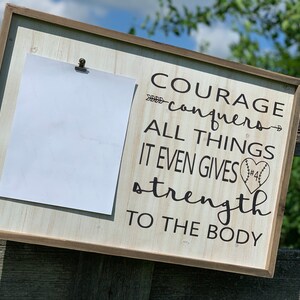 COURAGE
conquers
ALL THINGS
IT EVEN GIVES #4
strength
TO THE BODY